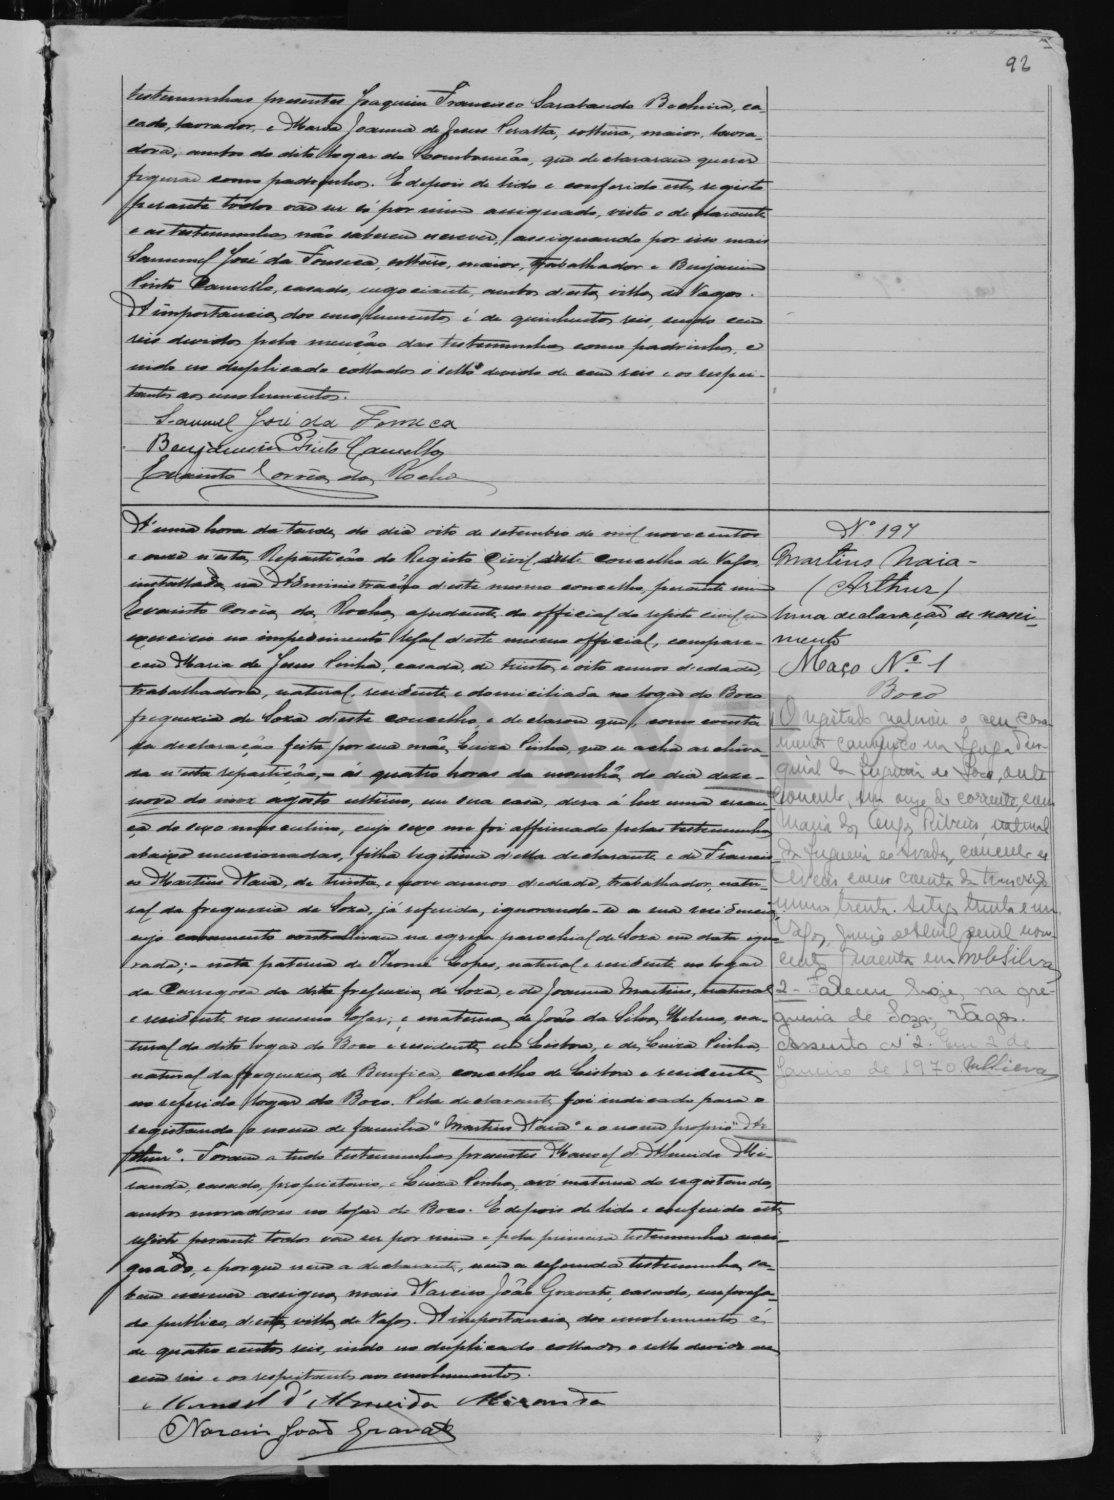 92
testemunhas presentes Joaquim Francisco Sarabando Bochina, ca-
sado, lavrador, e Maria Joanna de Jesus Peralta, solteira, maior, lavra-
dora, ambos do dito logar do Lombomeão, que declararam querer
figurar como padrinhos. E depois de lido e conferido este registo
perante todos vae ser só por mim assignado, visto o declarante
e as testemunhas não saberem escrever, assignando por isso mais
Sammuel José da Fonseca, solteiro, maior, trabalhador e Benjamim
Pinto Camello, casado, negociante, ambos d'esta villa de Vagos.
A importancia dos emolumentos é de quinhentos reis, sendo cem
reis devidos pela menção das testemunhas como padrinhos, e
indo no duplicado collados o sello devido de cem reis e os respei-
tantes aos emolumentos.
Samuel José da Fonseca
Benjamim Pinto Camello
Evaristo Corrêa da Rocha
A' uma hora da tarde do dia oito de setembro de mil novecentos
e onze n'esta Repartição do Registo Civil d'este concelho de Vagos
installada na Administração d'este mesmo concelho, perante mim
Evaristo Corrêa da Rocha, ajudante do official do registo civil em
exercicio no impedimento legal d'este mesmo official, compare-
ceu Maria de Jesus Pinha, casada, de trinta e oito annos d'edade,
trabalhadora, natural, residente e domiciliada no logar do Boco
freguezia de Soza d'este concelho, e declarou que, como consta
da declaração feita por sua mãe, Luiza Pinha, que se acha archiva-
da n'esta repartição, – ás quatro horas da manhã do dia deze-
nove do mez agosto ultimo, em sua casa, dera á luz uma crean-
ça do sexo masculino, cujo sexo me foi affirmado pelas testemunhas
abaixo mencionadas, filha legitima d'ella declarante e de Francis-
co Martins Naia, de trinta e nove annos d'edade, trabalhador, natu-
ral da freguezia de Soza, já referida, ignorando-se a sua residencia,
cujo casamento contrahiram na egreja parochial de Soza em data igno-
rada; – neta paterna de Thomé Lopes, natural e residente no logar
da Carregosa da dita freguezia de Soza, e de Joanna Martins, natural
e residente no mesmo logar; e materna de João da Silva Heleno, na-
tural do dito logar do Boco e residente em Lisboa, e de Luiza Pinha,
natural da freguezia de Bemfica, concelho de Lisboa e residente
no referido logar do Boco. Pela declarante, foi indicado para o
registando o nome de familia "Martins Naia" e o nome proprio "Ar-
thur". Foram a tudo testemunhas presentes Manoel d'Almeida Mi-
randa, casado, proprietario, e Luiza Pinha, avó materna do registando,
ambos moradores no logar do Boco. E depois de lido e conferido este
registo perante todos vae ser por mim e pela primeira testemunha assi-
gnado, e porque nem a declarante, nem a segunda testemunha sa-
bem escrever assigna mais Narciso João Gravato, casado, emprega-
do publico, d'esta villa de Vagos. A importancia dos emolumentos é
de quatrocentos reis, indo no duplicado collados o sello devido de
cem reis e os respeitantes aos emolumentos.
Manoel d'Almeida Miranda
Narciso João Gravato
Nº 197
Martins Naia -
(Arthur)
Uma declaração de nasci-
mento
Maço Nº 1
Boco
1 O registado realizou o seu casa-
mento canonico na Igreja Paro-
quial da freguesia de Soza, deste
concelho, em onze do corrente, com
Maria da Cruz Ribeiro, natural
da freguesia de
como consta da transcrição
numero trenta.
Vagos,
2 - Faleceu hoje, na fre-
guesia de Soza, Vagos.
Assento nº 2. Em 2 de
Janeiro de 1970.
ADAVR